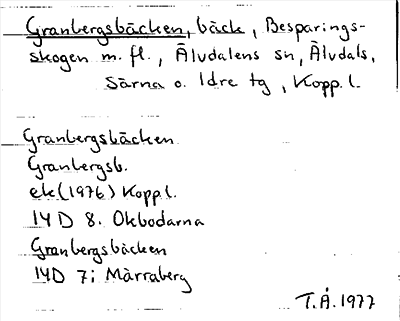 Granbergsbäcken, bäck, Besparings-
skogen m. fl., Älvdalens sn, Älvdals,
Särna o. Idre tg, Kopp. l.
Granbergsbäcken
Granbergsb.
ek (1976) Kopp. l.
14 D 8. Okbodarna
Granbergsbäcken
14D 7i Märraberg
T.Å. 1977